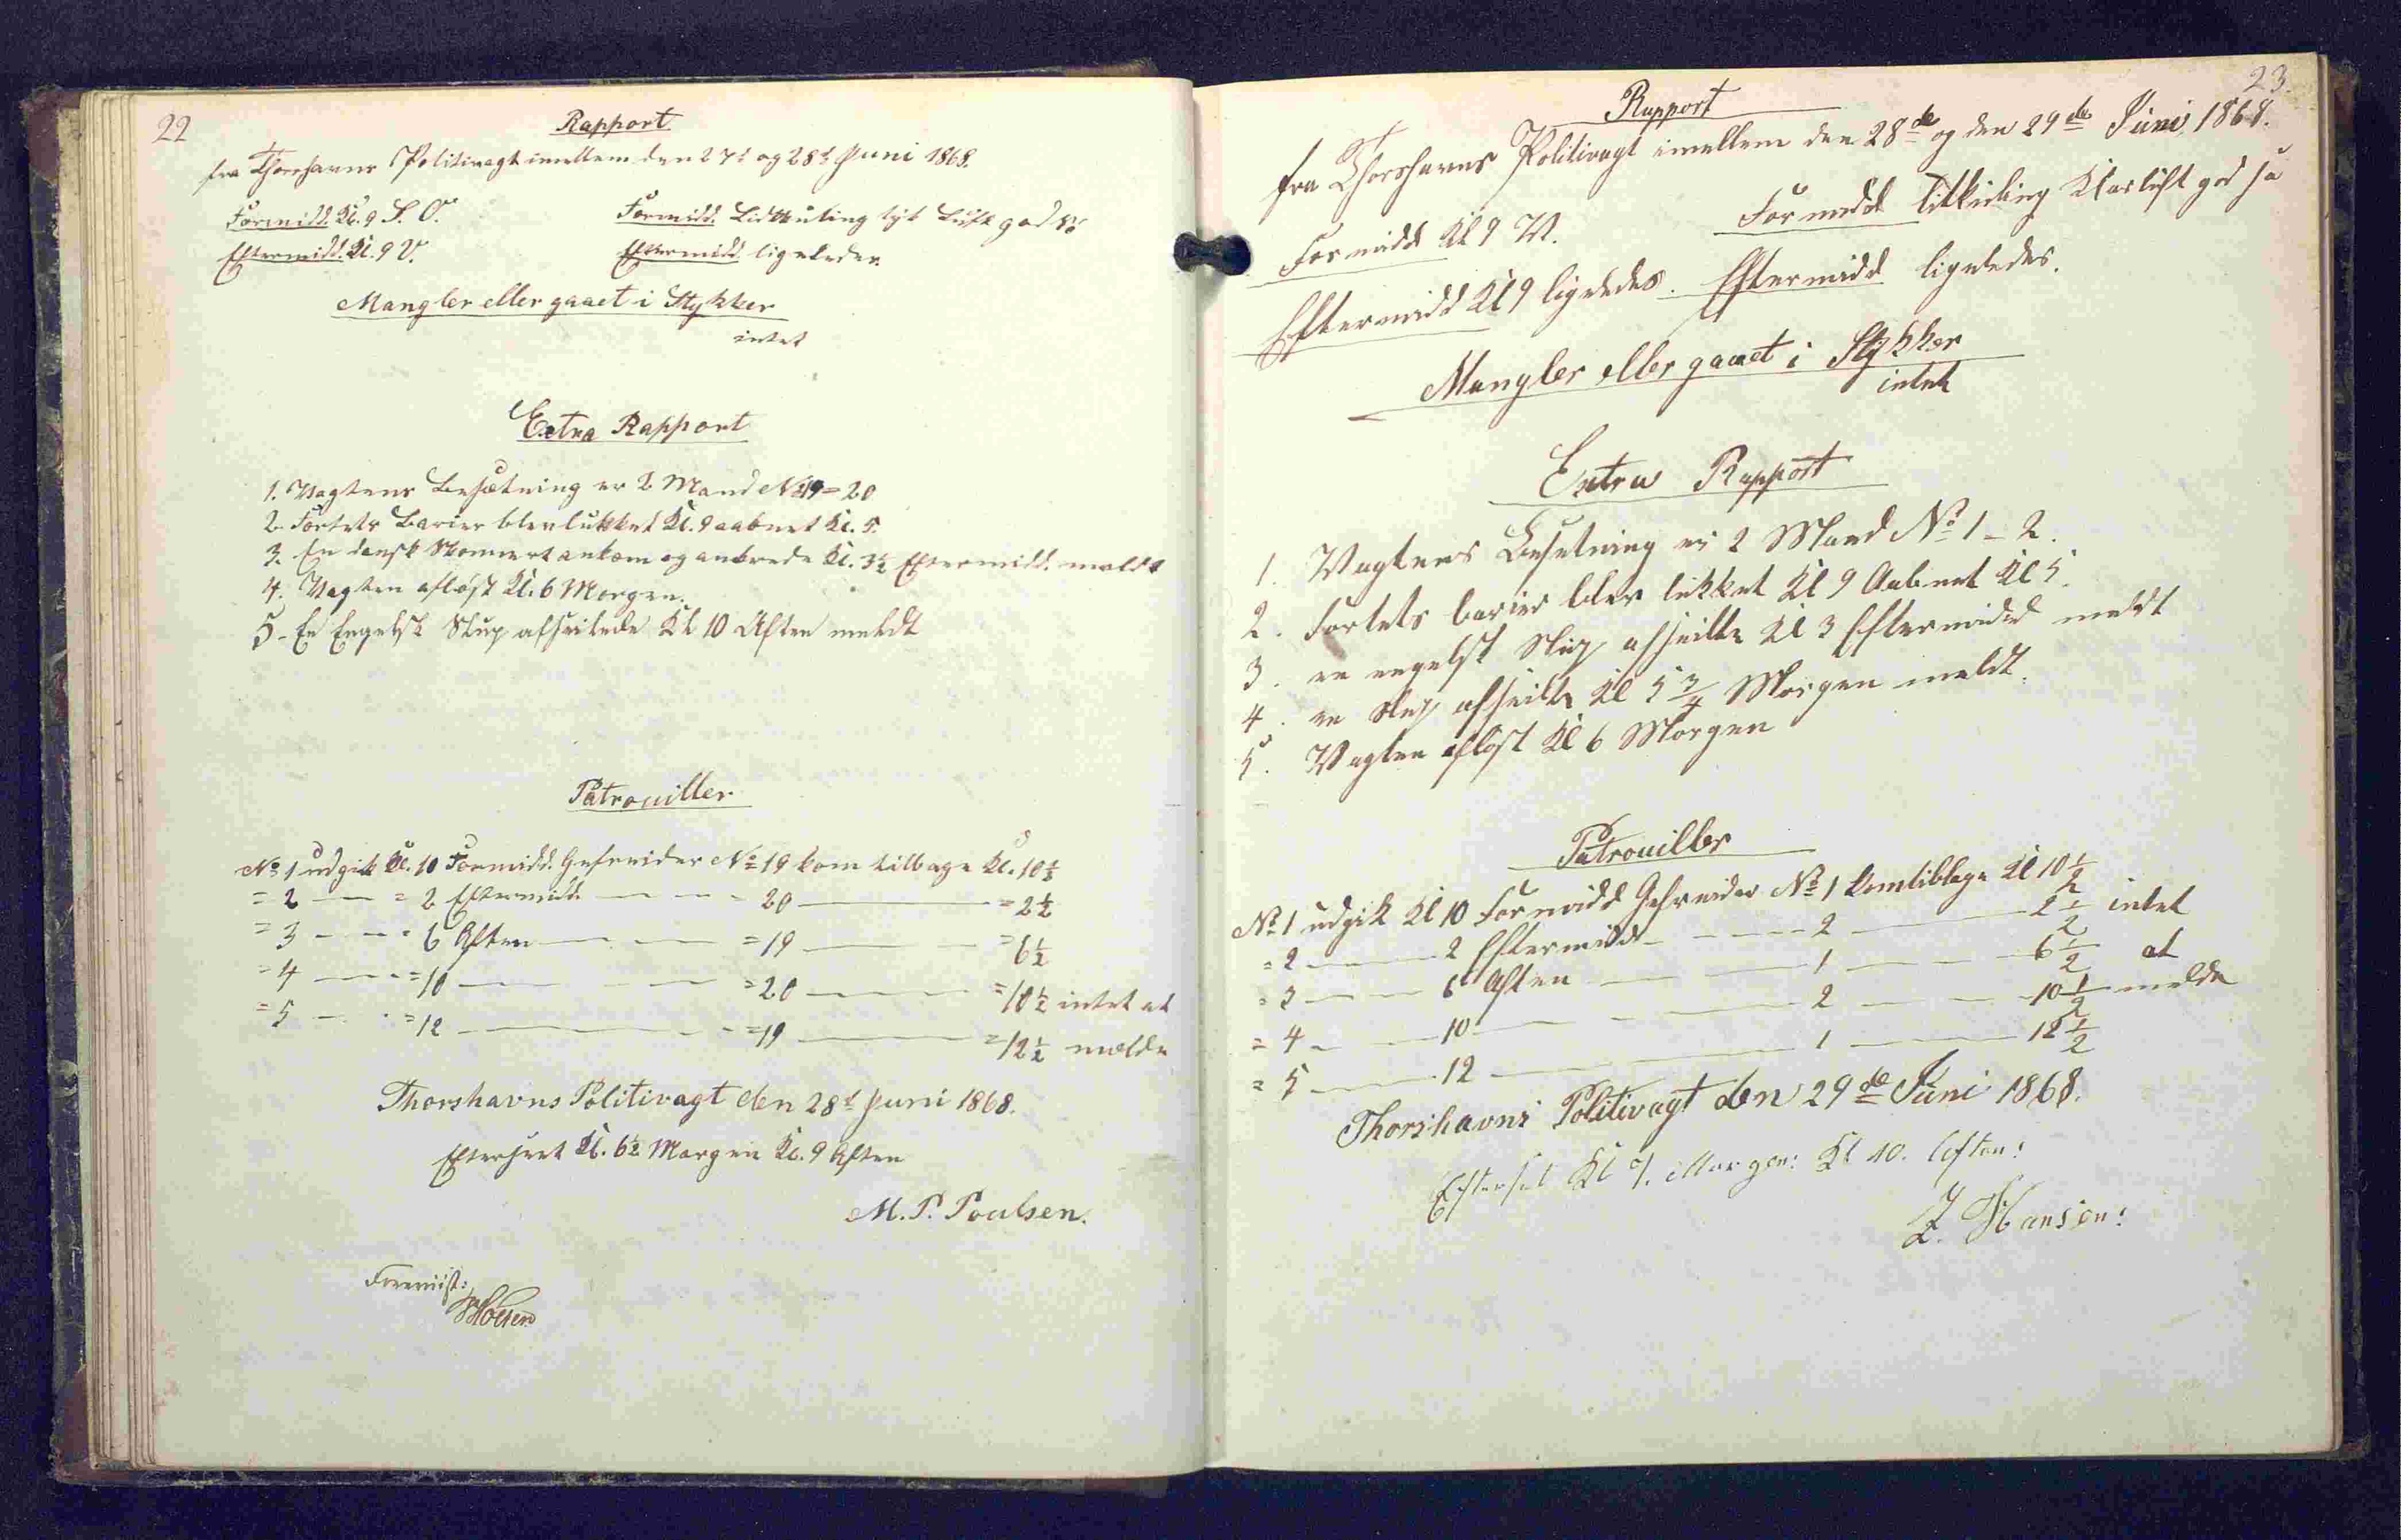 22
Rapport
fra Thorshavns Politivagt imellem den 27d og 28d Juni 1868.
Formidd. Kl. 9 S. O. Formidd. Lidt Kuling tyk Luft god Sö
Eftermidd. Kl. 9 V. Eftermidd. ligeledes
Mangler eller gaaet i Stykker
intet
Extra Rapport
1. Vagtens Besætning er 2 Mand No 19 = 20
2. Fortets Barier blev lukket Kl. 9 aabnet Kl. 5.
3. En dansk Skonnert ankom og ankrede Kl. 3½ Eftermidd. meldt
4. Vagten aflöst Kl. 6 Morgen.
5 - En Engelsk Slup afseilede Kl 10 Aften meldt
Patrouiller
No 1 udgik Kl. 10 Formidd. Gefreider No 19 kom tilbage Kl. 10½
= 2 — = 2 Eftermidd. — — - 20 — = 2½
= 3 - - = 6 Aften — — = 19 — = 6½
= 4 — = 10 — — = 20 — = 10½ intet at
= 5 - = 12 — - = 19 — = 12½ melde
Thorshavns Politivagt den 28d Juni 1868.
Efterseet Kl. 6½ Morgen Kl. 9 Aften
M. P. Poulsen.
Foreviist:
23.
Rapport
fra Thorshavns Politivagt imellem den 28de og den 29de Juni 1868.
Formidd Kl 9 V. Formidd litkuling Klarluft god sö
Eftermidd Kl 9 ligeledes. Eftermidd ligeledes.
Mangler eller gaaet i Stykker
intet
Extra Rapport
1. Vagtens Besetning er 2 Mand No 1 - 2.
2. Fortets barier blev lukket Kl 9 Aabnet Kl 5.
3. en engelsk Slup afseilte Kl 3 Eftermidd meldt
4. en Slup afseilte Kl 5 3/4 Morgen meldt.
5. Vagten aflöst Kl 6 Morgen
Patrouiller
No 1 udgik Kl 10 Formidd Gefreider No 1 komtilbage Kl 10½
= 2 — 2 Eftermidd - - - 2 — 2½ intet
= 3 — 6 Aften — 1 — 6½ at
= 4 - — 10 — 2 — 10½ melde
= 5 — 12 — 1 — 12½
Thorshavns Politivagt den 29de Juni 1868.
Efterset Kl 7. Morgen: Kl 10. Aften:
Z. Hansen: